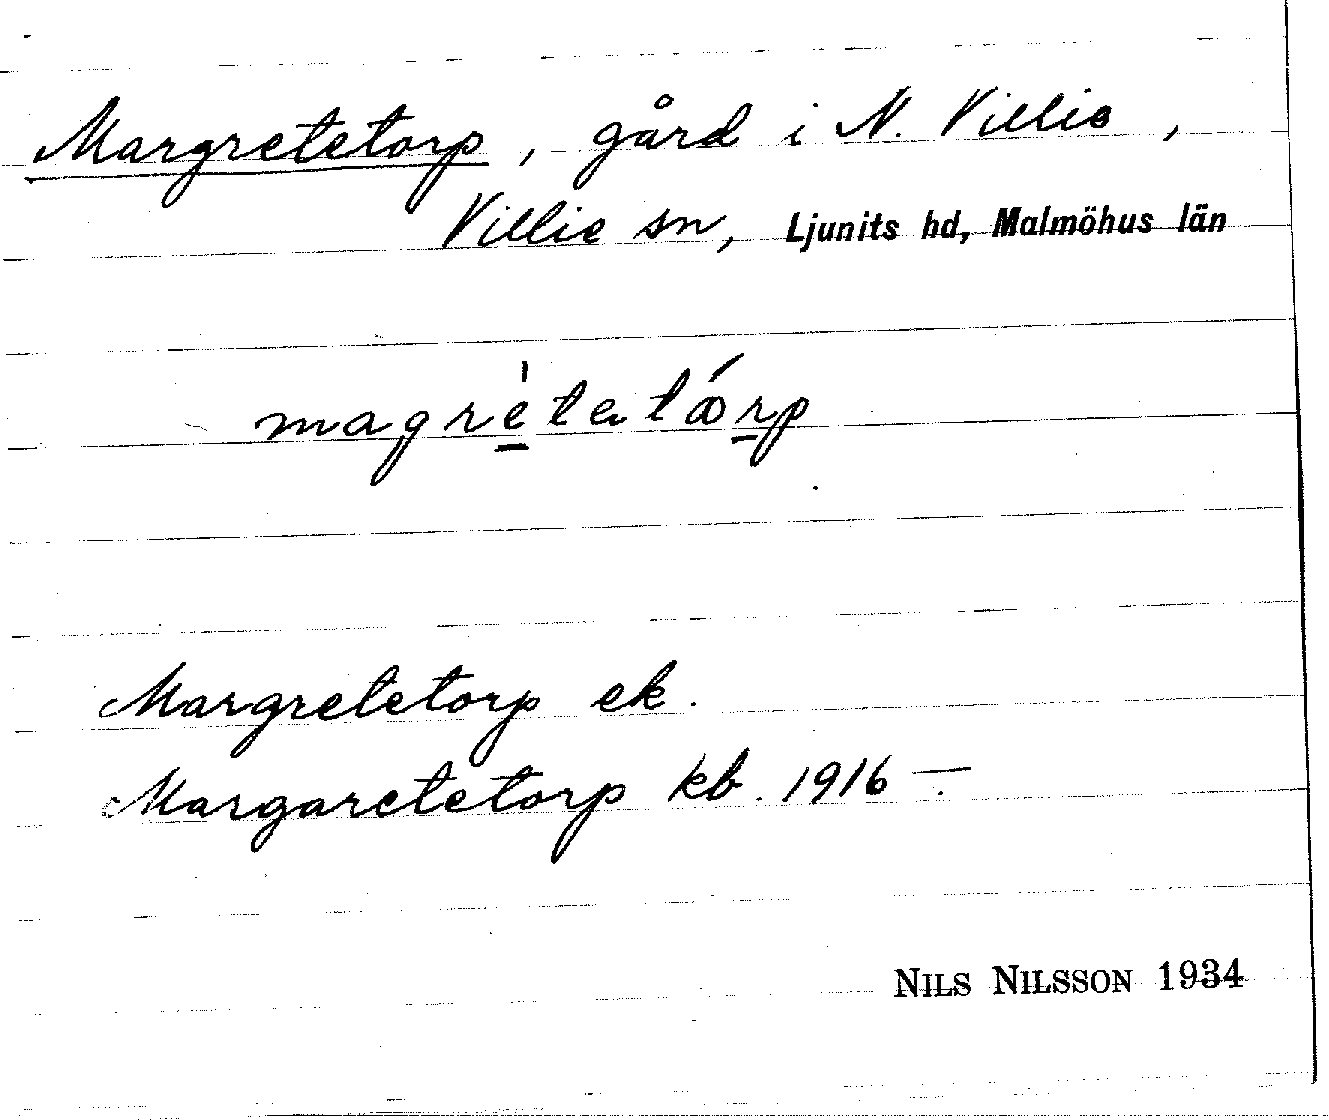 Margretetorp, gård i N. Villie,
Villie sn, Ljunits hd, Malmöhus län
magrètatǿrp
Margretetorp ek.
Margaretetorp kb. 1916 –.
NILS NILSSON 1934